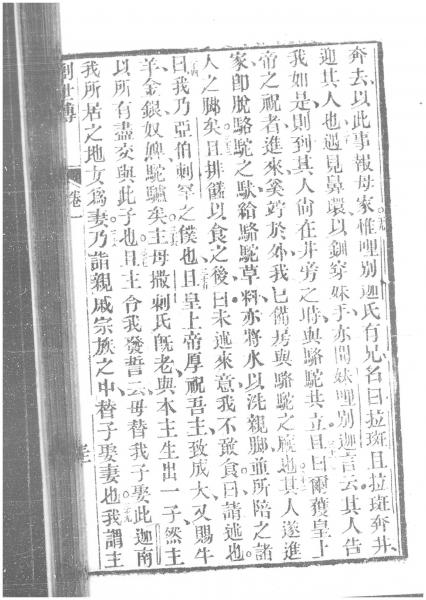 奔去、以此事報母家惟哩別迦氏有兄名曰拉班且拉班奔井、
迎其人也遇見鼻環以釧穿妹手亦聞妹哩別迦言云其人告
我如是則到其人尚在井旁之時與駱駝共立且曰爾獲皇上
帝之祝者進來奚竚於外我已備房與駱駝之廐也其人遂進
家卽脫駱駝之馱給駱駝草料亦將水以洗親腳並所陪之諸
人之腳矣且排饌以食之後曰未述來意我不敢食曰請述也
曰我乃亞伯剌罕之僕也且皇上帝厚祝吾主致成大又賜牛
羊金銀奴婢駝驢矣主母撒剌氏旣老與本主生出一子然主
以所有盡交與此子也且主令我發誓云毋替我子娶此迦南
我所居之地女爲妻乃詣親戚宗族之中替子娶妻也我謂主
創世傳
卷一